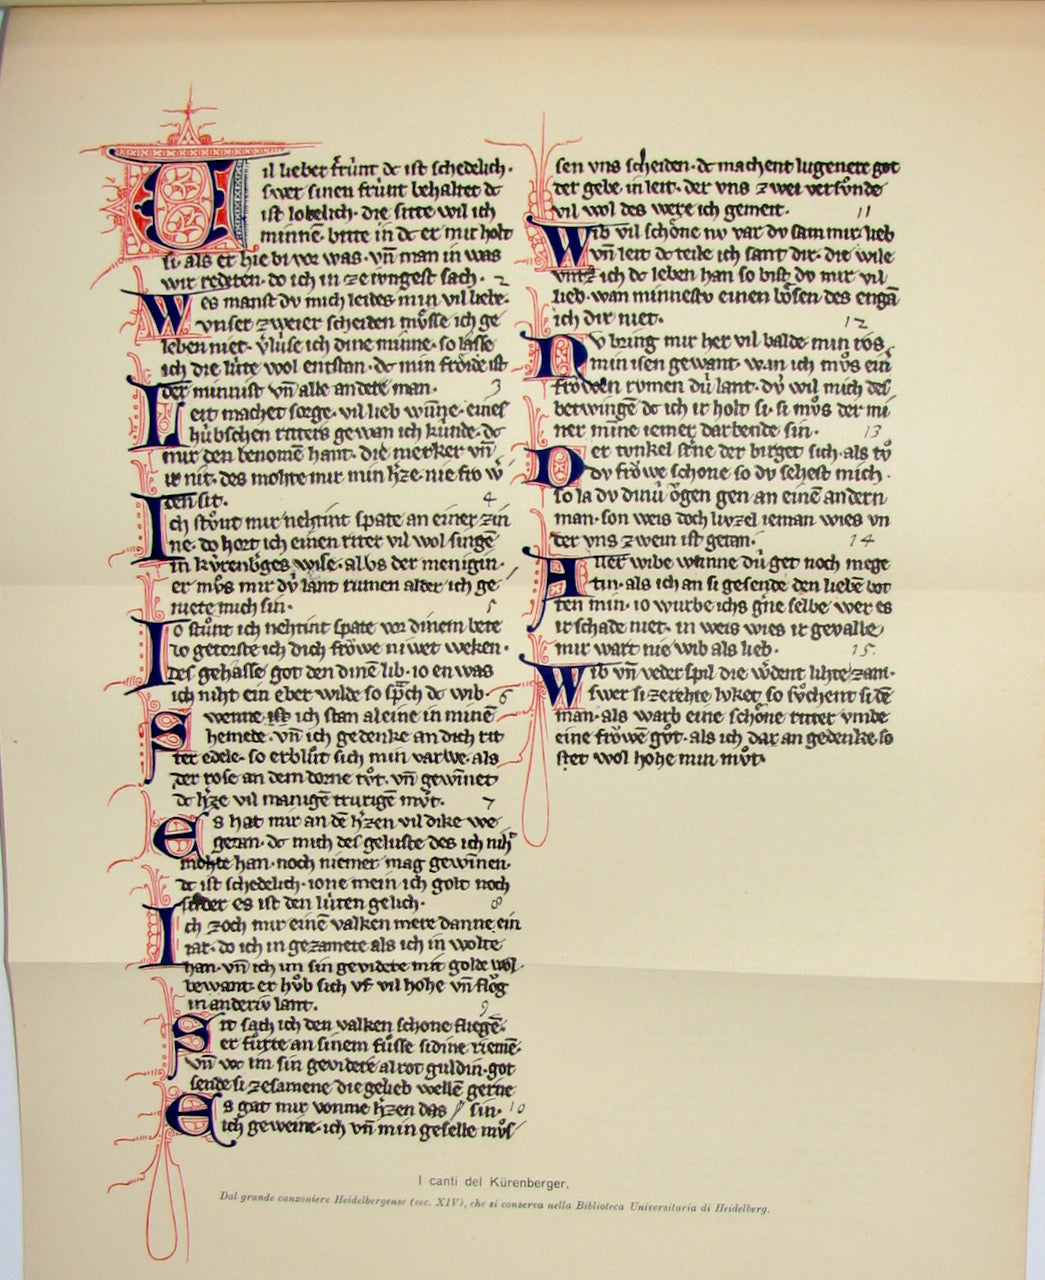 Vil lieber frúnt dc ist schedelich·
swer sinen frúnt behaltet dc
ist lobelich· die sitte wil ich
minnē· bitte in dc er mir holt
si· als er hie bi vor was· vn̄ man in was
wir redeten· do ich in ze iungest sach· 2
Wes manst dv mich leides min vil liebe·
vnser zweier scheiden mv̊sse ich ge
leben niet· v̍lúse ich dine minne· so lasse
ich die lúte wol entstan· dc min frӧide ist
der minnist vn̄ alle andere man· 3
Leit machet sorge· vil lieb wún̄e· eines
húbschen ritters gewan ich kúnde· dc
mir den benomē hant· die merker vn̄
ir nit· des mohte mir min h̍ze· nie fro w̍
den sit. 4
Ich stv̊nt mir nehtint spate an einer zin
ne· do hort ich einen riter vil wol singē
in kúrenb̍ges wise· al vs der menigin·
er mv̊s mir dú lant rumen alder ich ge
niete mich sin· 5
Io stv̊nt ich nehtint spate vor dinem bete
do getorste ich dich frowe niwet weken·
des gehasse got den dinē lib· io en was
ich niht ein eber wilde so sp̄ch dc wib· 6
Swenne ich stan aleine in minē
hemede· vn̄ ich gedenke an dich rit
ter edele· so erblůt sich min varwe· als
der rose an dem dorne tv̊t· vn̄ gewin̄et
dc h̍ze vil manigē trurigē mv̊t· 7
Es hat mir an dē h̍zen vil dike we
getan· dc mich des geluste des ich niht
mohte han· noch niemer mag gewinen·
dc ist schedelich· ione mein ich golt noch
silber es ist den lúten gelich· 8
Ich zoch mir einē valken mere danne ein
iar· do ich in gezamete als ich in wolte
han· vn̄ ich im sin gevidere mit golde wol
bewant· er hv̊b sich vf vil hohe vn̄ flog
in anderiv lant. 9
Sit sach ich den valken schone fliegē·
er fůrte an sinem fůsse sidine riemē·
vn̄ wc im sin gevidere alrot guldin· got
sende si zesamene die gelieb wellē gerne
Es gat mir vonme h̍zen das / sin· 10
ich geweine· ich vn̄ min geselle mv̊s/
sen vns scheiden· dc machent lugenere got
der gebe in leit· der vns zwei versůnde
vil wol des were ich gemeit· 11
Wib vil schӧne nv var dv sam mir lieb
vn̄ leit dc teile ich sant dir· die wile
vntz ich dc leben han so bist dv mir vil
lieb· wan minnestv einen bӧsen des engā
ich dir niet. 12
Nv bring mir her vil balde min ros
min isen gewant· wan ich mv̊s einr
frowen rvmen dú lant· dú wil mich des
betwingē dc ich ir holt si· si mv̊s der mi
ner min̄e iemer darbende sin· 13
Der tvnkel st̍ne der birget sich· als tv̊
dv frowe schone so dv sehest mich·
so la dv dinú ӧgen gen an einē andern
man· son weis doch lúzel ieman wies vn
der vns zwein ist getan· 14
Aller wibe wunne dú get noch mege
tin· als ich an si gesende den liebē bot
ten min· io wurbe ichs g̍ne selbe wer es
ir schade niet· in weis wies ir gevalle
mir wart nie wib als lieb· 15
Wib vn̄ veder spil die w̍dent lihte zam·
swer si zerehte lvket so sv̊chent si dē
man· als warb eine schӧne ritter vmbe
eine frowē gv̊t· als ich dar an gedenke so
stet wol hohe min mv̊t·
I canti del Kürenberger.
Dal grande canzoniere Heidelbergense (sec. XIV), che si conserva nella Biblioteca Universitaria di Heidelberg.